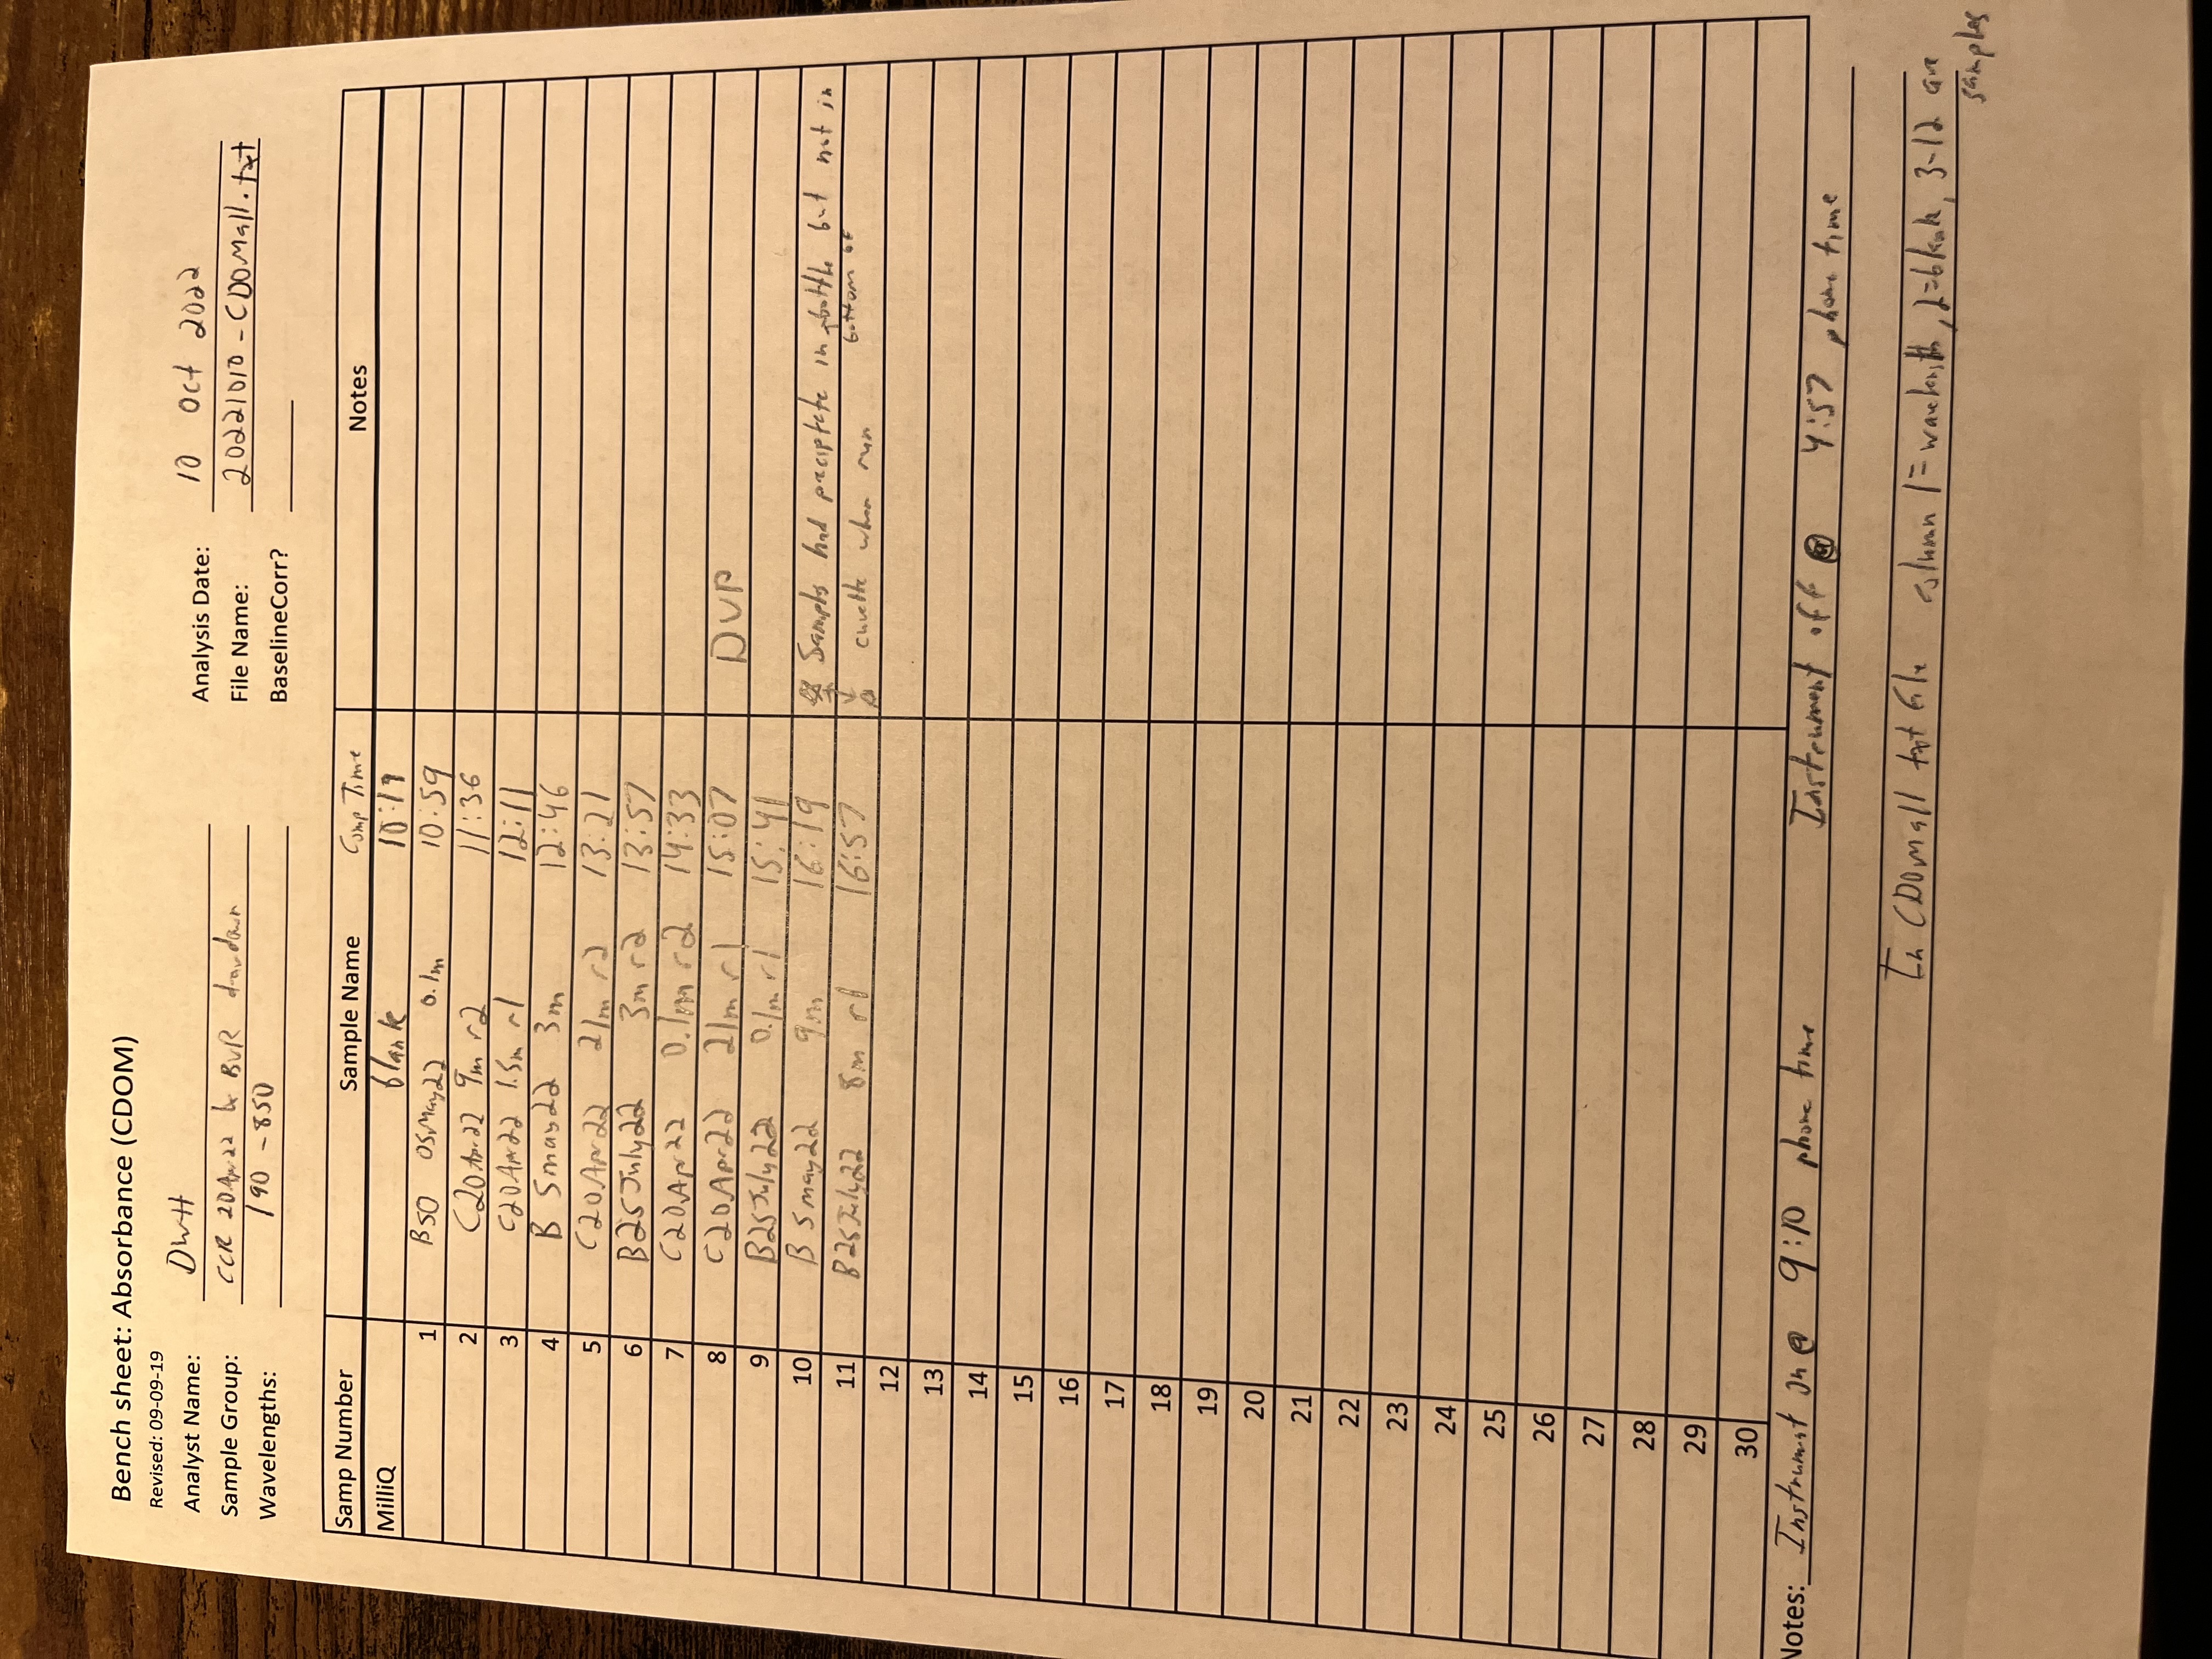 Bench sheet: Absorbance (CDOM)
Revised: 09-09-19
Analyst Name: DWH
Analysis Date: 10 Oct 2022
Sample Group: CCR 20Apr22 & BVR drawdown
File Name: 20221010-CDOMall.txt
Wavelengths: 190-850
BaselineCorr?
Samp Number Sample Name Comp Time Notes
MilliQ blank 10:19
1 B50 05May22 0.1m 10:59
2 C20Apr22 9m r2 11:36
3 C20Apr22 1.5m r1 12:11
4 B 5may22 3m 12:46
5 C20Apr22 21m r2 13:21
6 B25July22 3m r2 13:57
7 C20Apr22 0.1m r2 14:33
8 C20Apr22 21m r1 15:07 DUP
9 B25July22 0.1m r1 15:41
10 B 5may22 9m 16:19 Samples had preciptate in bottle but not in
bottom of
11 B25July22 8m r1 16:57 cuvette when run
12
13
14
15
16
17
18
19
20
21
22
23
24
25
26
27
28
29
30
Notes: Instrument on @ 9:10 phone time Instrument off @ 4:57 phone time
In CDOMall txt file column 1=wavelength, 2=blank, 3-12 are
samples